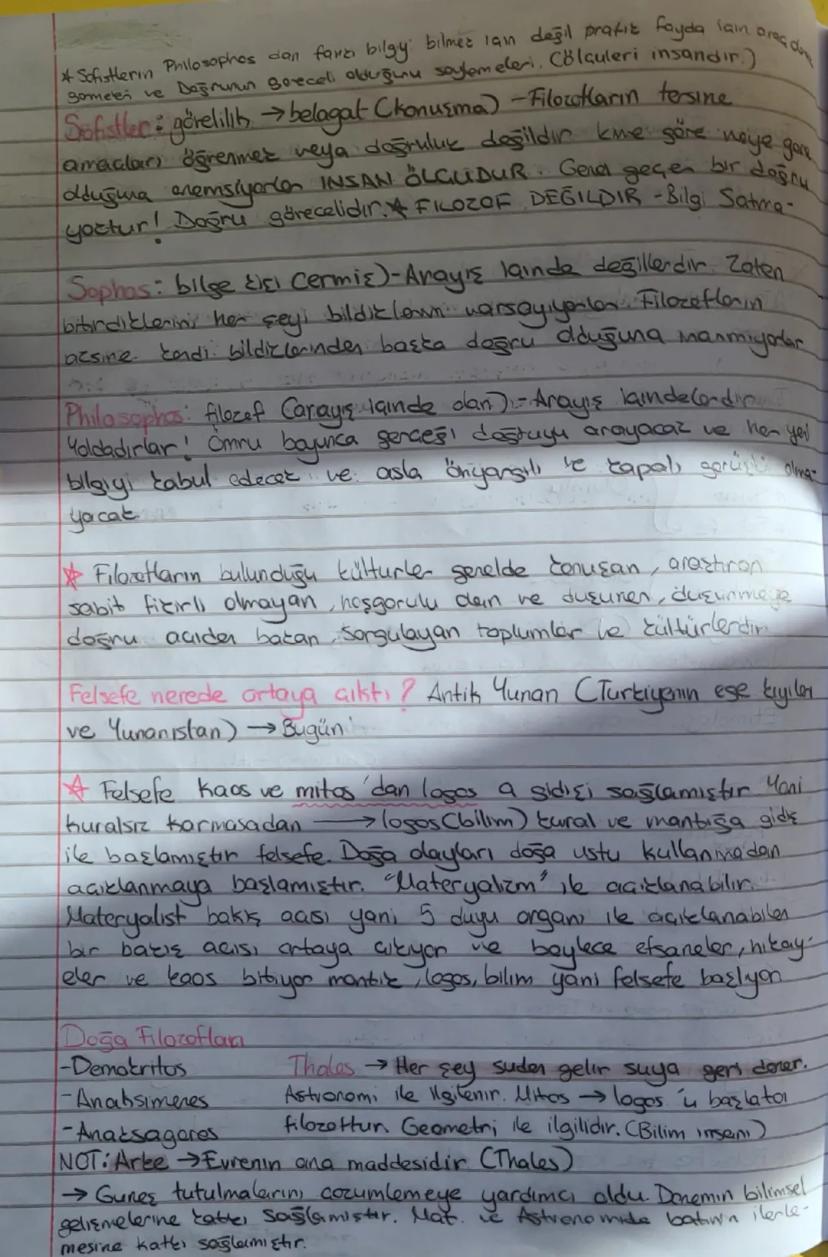 * Sofistlerin Philosophos dan farkı bilgiyi bilmek için değil pratik fayda için araç olarak
görmeleri ve Doğrunun göreceli olduğunu söylemeleri. (Ölçüleri insandır.)
Sofistler: görelilik → belagat (konuşma) - Filozofların tersine
amaçları öğrenmek veya doğruluk değildir kime göre neye göre
olduğunu önemsiyorlar İNSAN ÖLÇÜDÜR. Genel geçer bir doğru
yoktur! Doğru görecelidir. * FILOZOF DEĞILDIR - Bilgi Satma-
Sophos: bilge kişi (ermiş) - Arayış içinde değillerdir. Zaten
bitirdiklerini her şeyi bildiklerini varsayıyorlar. Filozofların
aksine kendi bildiklerinden başka doğru olduğuna inanmıyorlar
Philosophos: filozof (arayış içinde olan) - Arayış içindelerdir
Yoldadırlar! Ömrü boyunca gerçeği doğruyu arayacak ve her yeni
bilgiyi kabul edecek ve asla önyargılı ve kapalı görüşlü olma-
yacak
* Filozofların bulunduğu kültürler genelde konuşan, araştıran
sabit fikirli olmayan, hoşgorulu olan ve düşünen, düşünmeye
doğru açıdan bakan, sorgulayan toplumlar ve kültürlerdir.
Felsefe nerede ortaya çıktı? Antik Yunan (Türkiyenin ege kıyıları
ve Yunanistan) → Bugün
* Felsefe Kaos ve mitos'dan logos a gidişi sağlamıştır Yani
kuralsız karmaşadan → logos (bilim) kural ve mantığa gidiş
ile başlamıştır felsefe. Doğa olayları doğa ustu kullanmadan
açıklanmaya başlamıştır. "Materyalizm" ile açıklanabilir.
Materyalist bakış açısı yani 5 duyu organı ile açıklanabilen
bir bakış açısı ortaya çıkıyor ve böylece efsaneler, hikay-
eler ve kaos bitiyor mantık, logos, bilim yani felsefe başlıyor
Doğa Filozofları
-Demokritos Thales → Her şey sudan gelir suya geri döner.
-Anaksimenes Astronomi ile ilgilenir. Mitos → logos 'u başlatan
-Anaksagoras filozoftur. Geometri ile ilgilidir. (Bilim insanı)
NOT: Arke → Evrenin ana maddesidir (Thales)
→ Güneş tutulmalarını çözümlemeye yardımcı oldu. Dönemin bilimsel
gelişmelerine katkı sağlamıştır. Mat. ve Astronomide batının ilerle-
mesine katkı sağlamıştır.